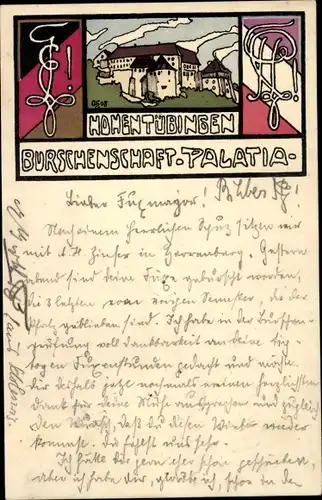 OG 08
HOHENTÜBINGEN
BURSCHENSCHAFT-PALATIA-
Lieber Fuxmajor!
Nach einem herrlichen Spuz sitzen wir
mit A.H. Zinser in Herrenberg. Gestern
abend sind deine Füxe geburscht worden,
die 3 letzten vom vorigen Semester, die der
Pfalz geblieben sind. Ich habe in der Burschen-
prüfung voll Dankbarkeit an deine
Fuxenstunden gedacht und möchte
dir deshalb jetzt nochmals meinen herzlichsten
Dank für deine Mühe aussprechen und zugleich
den Wunsch, dass du diesen Winter wieder
kommst. Du fehlst uns sehr.
Ich hätte dir gern eher schon geschrieben,
aber ich habe dir, glaube ich, schon in den